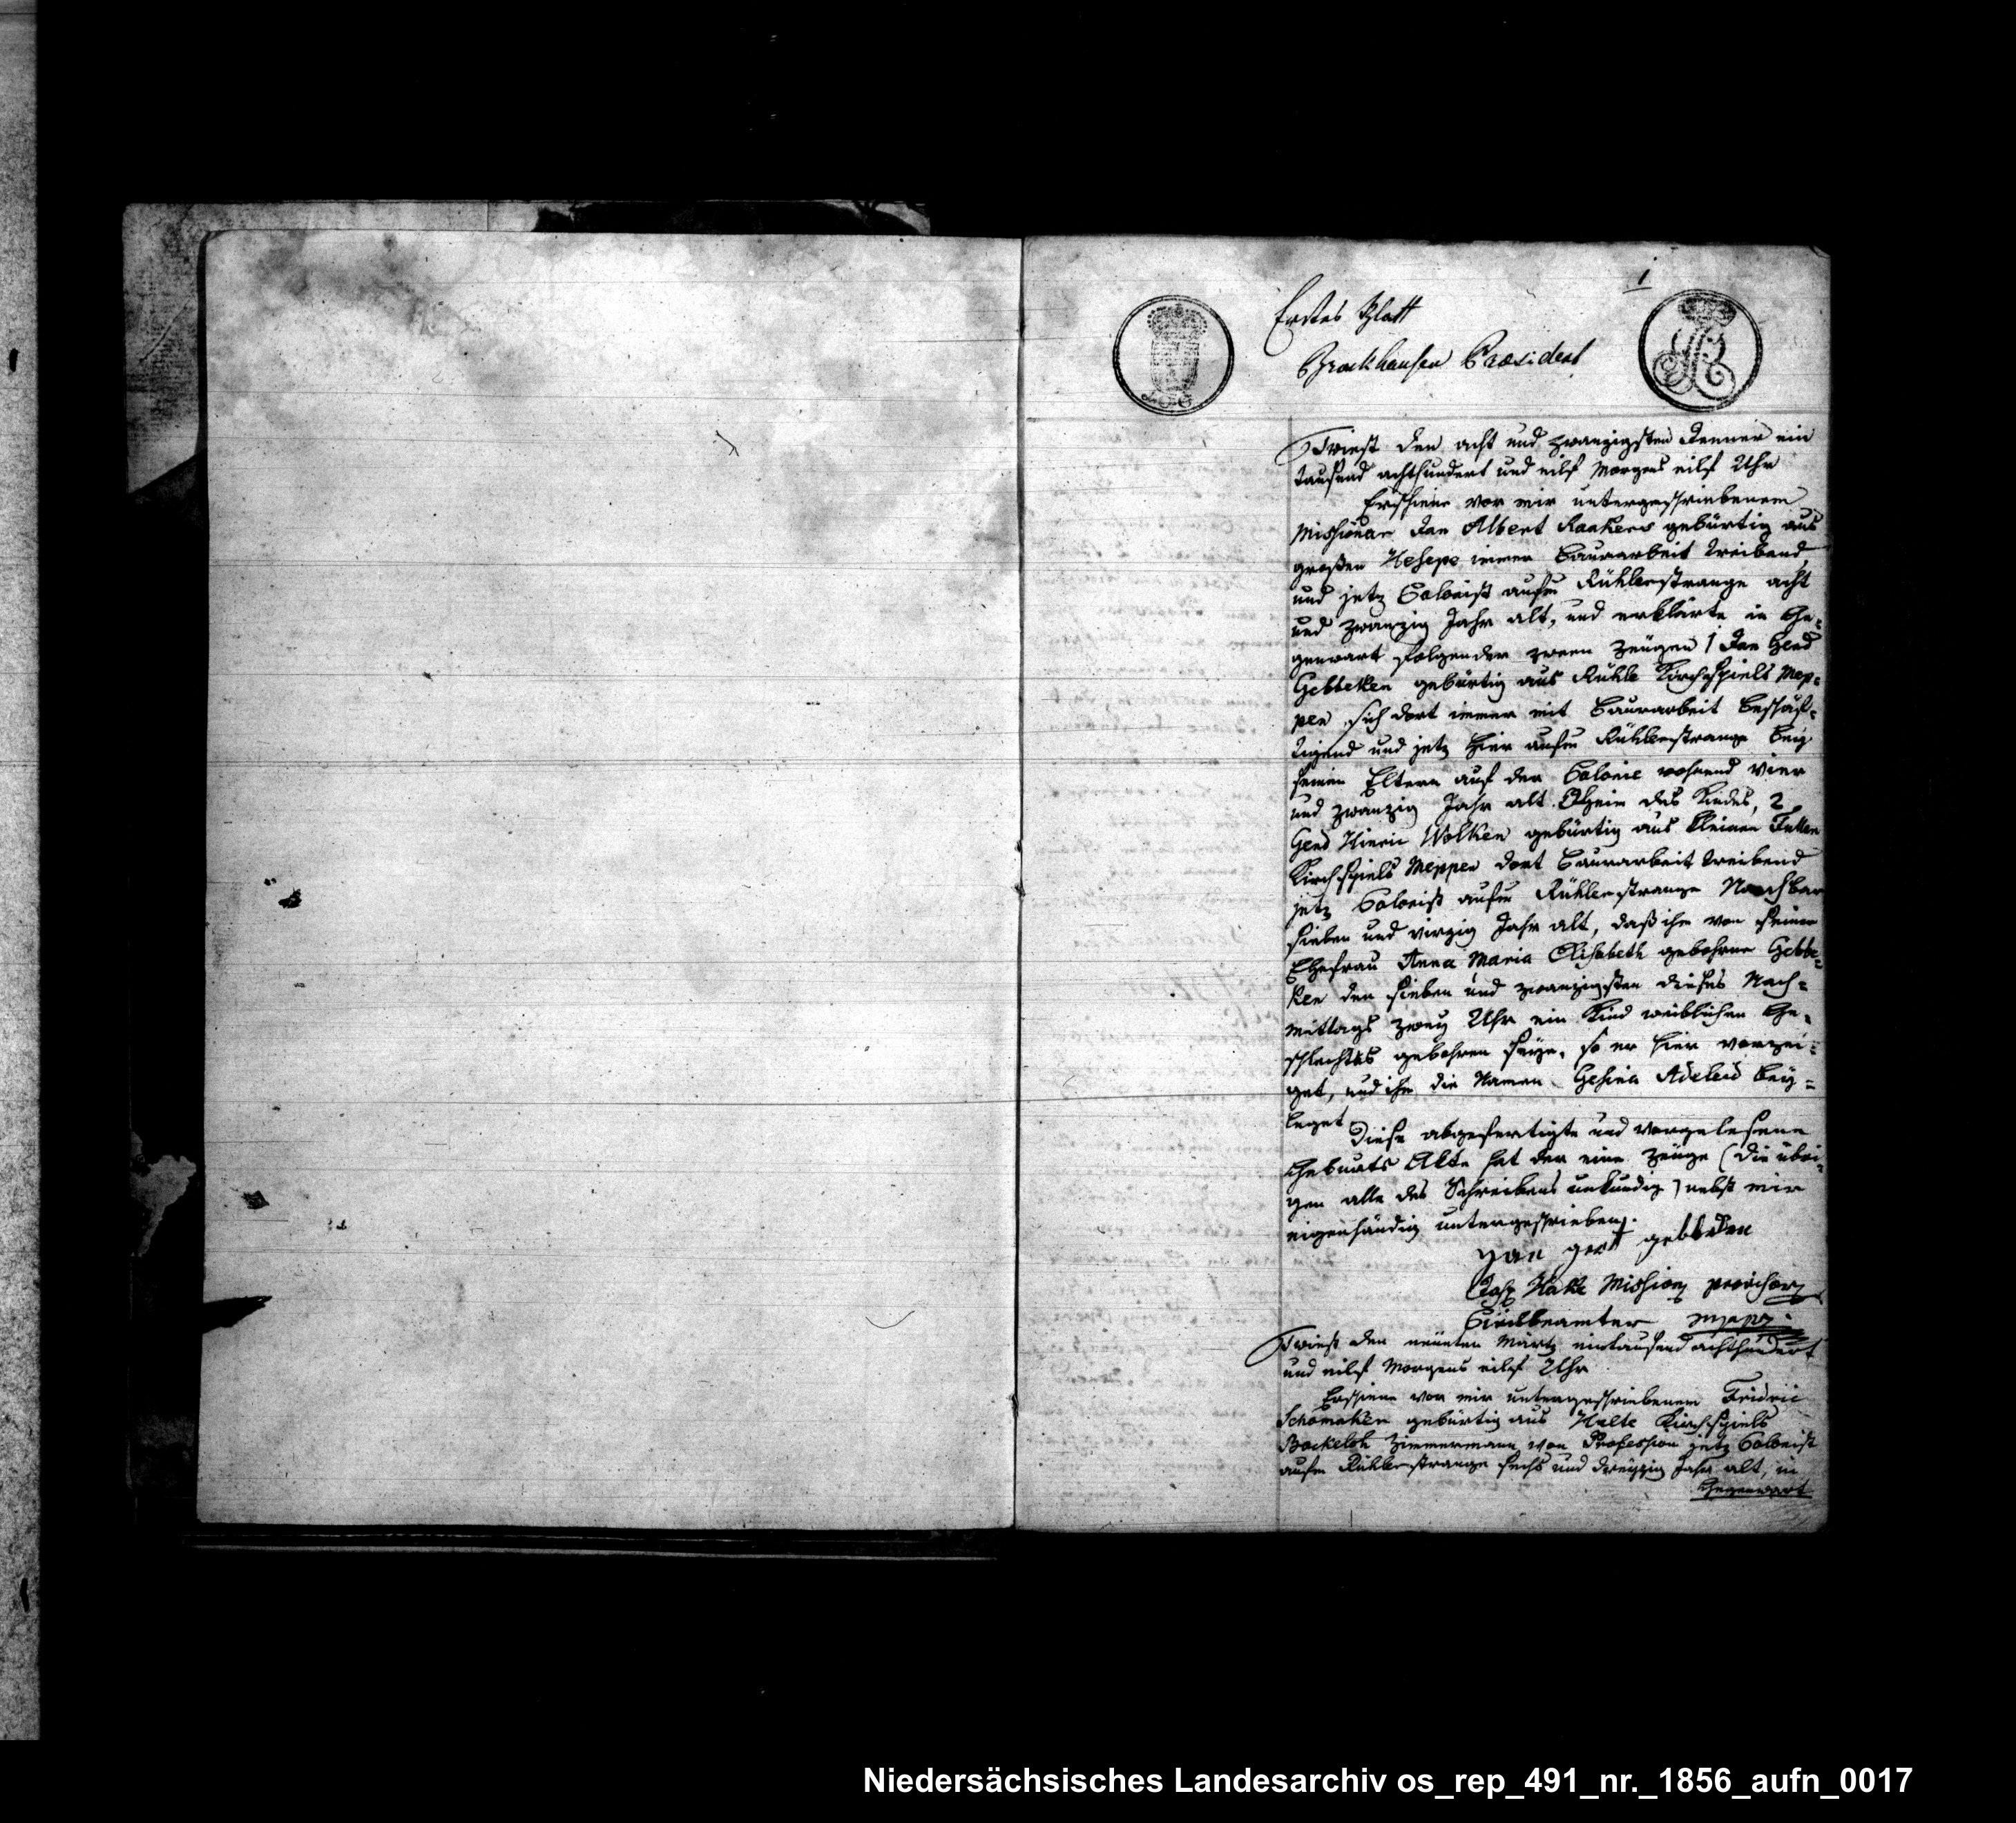 1
Erstes Blatt
Brockhausen Præsident
Twist den acht und zwanzigsten Jenner ein
tausend achthundert und eilf Morgens eilf Uhr
Erschiene vor mir untergeschriebenem
Missionar Jan Albert Raakers gebürtig aus
großen Hesepe immer Baurarbeit treibend
und jetz Colonist aufm Rühlerstrange acht
und zwanzig Jahr alt, und erklärte in Ge=
genwart folgender zween Zeugen 1 Jan Gerd
Gebbeken gebürtig aus Rühle Kirchspiels Mep=
pen, sich dort immer mit Baurarbeit beschäf=
tigend und jetz hier aufm Rühlerstrange bey
seinen Eltern auf der Colonie wohnend vier
und zwanzig Jahr alt Oheim des Kindes, 2,
Gerd Hinric Wolken gebürtig aus kleinen Fullen
Kirchspiels Meppen dort Baurarbeit treibend
jetz Colonist aufm Rühlerstrange Nachbar
sieben und virzig Jahr alt, daß ihm von seiner
Ehefrau Anna Maria Elisabeth gebohrne Gebbe=
ken den sieben und zwanzigsten dieses Nach=
mittags zwey Uhr ein Kind weiblichen Ge=
schlechtes gebohren seye, so er hier vorzei=
get, und ihm die Namen Gesina Adeleid bey=
leget
Diese abgefertigte und vorgelesene
Geburts Akte hat der eine Zeuge (die übri=
gen alle des Schreibens unkündig) nebst mir
eigenhändig untergeschrieben.
yan gert gebbeken
Hake Mission
Civilbeamter mppr
Twist den neunten Märtz eintausend achthundert
und eilf Morgens eilf Uhr
Erschiene vor mir untergeschriebenem Fridric
Schomaker gebürtig aus Helte Kirchspiels
Bokeloh Zimmermann von Profession jetz Colonist
aufm Rühlerstrange sechs und dreyzig Jahr alt, in
Gegenwart
Niedersächsisches Landesarchiv os_rep_491_nr._1856_aufn_0017